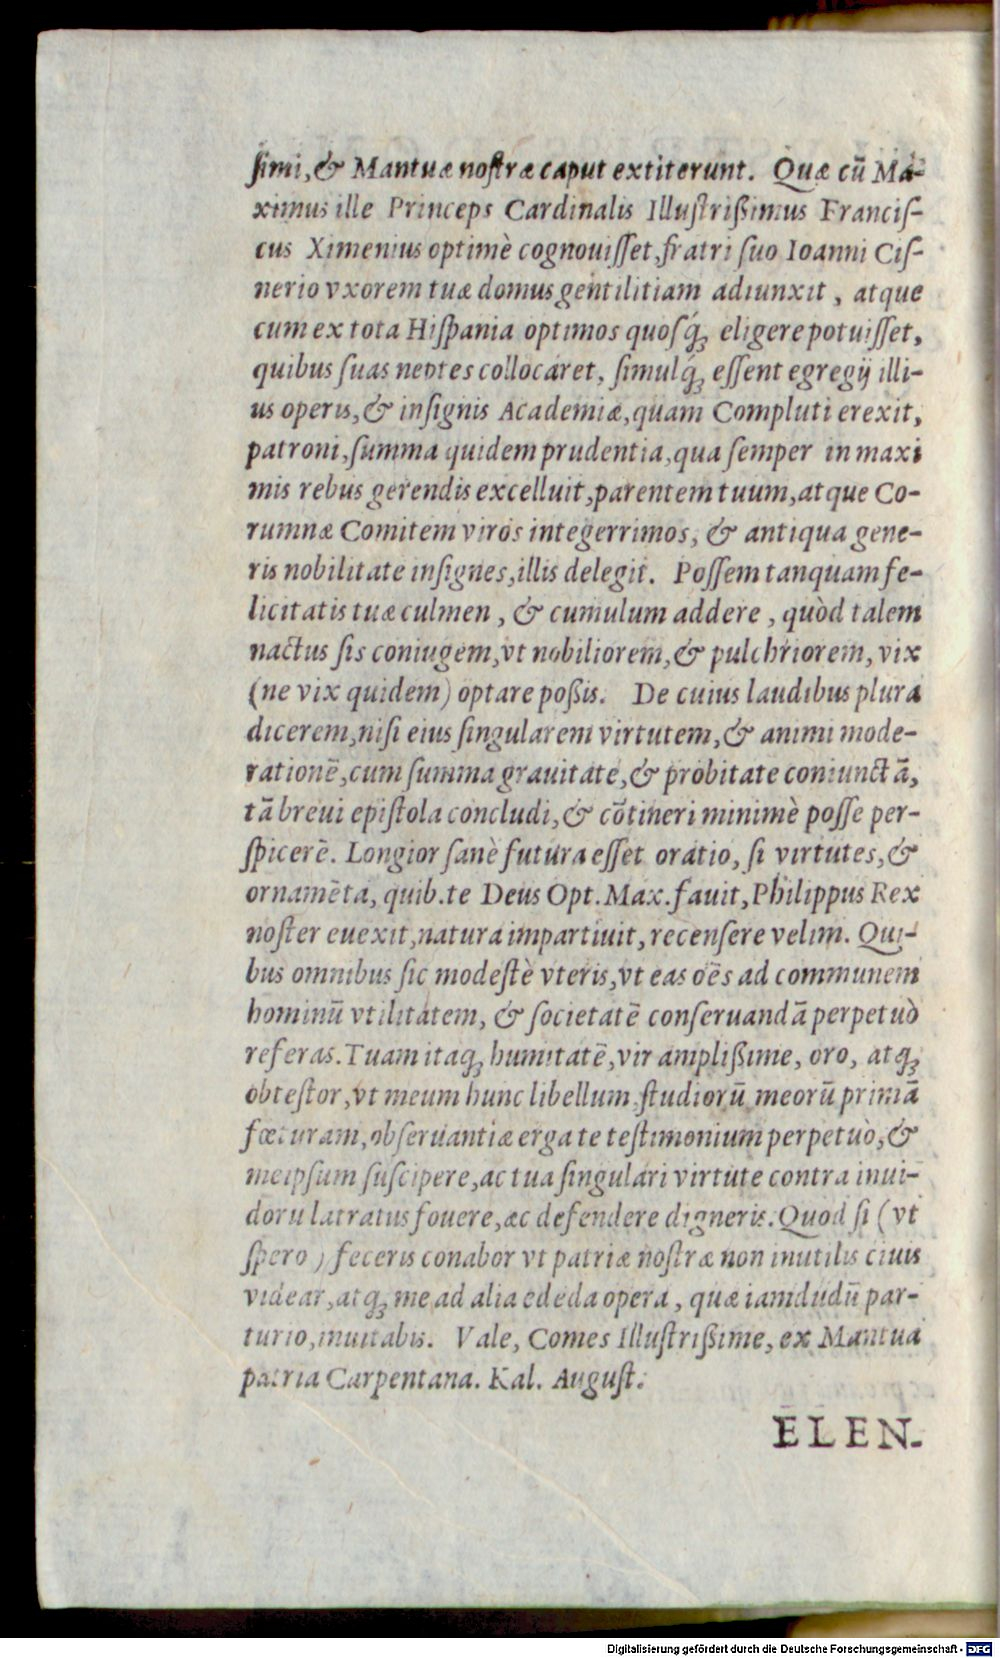 ſimi, & Mantuæ noſtræ caput extiterunt. Quæ cū Ma-
ximus ille Princeps Cardinalis Illuſtrißimus Franciſ-
cus Ximenius optimè cognouiſſet, fratri ſuo Ioanni Ciſ-
nerio vxorem tuæ domus gentilitiam adiunxit, atque
cum ex tota Hiſpania optimos quoſq́ꝫ eligere potuiſſet,
quibus ſuas neptes collocaret, ſimulq́ꝫ eſſent egregij illi-
us operis, & inſignis Academiæ, quam Compluti erexit,
patroni, ſumma quidem prudentia, qua ſemper in maxi
mis rebus gerendis excelluit, parentem tuum, atque Co-
rumnæ Comitem viros integerrimos, & antiqua gene-
ris nobilitate inſignes, illis delegit. Poſſem tanquam fe-
licitatis tuæ culmen, & cumulum addere, quòd talem
nactus ſis coniugem, vt nobiliorem, & pulchriorem, vix
(ne vix quidem) optare poßis. De cuius laudibus plura
dicerem, niſi eius ſingularem virtutem, & animi mode-
rationē, cum ſumma grauitate, & probitate coniunctā,
tā breui epiſtola concludi, & cōtineri minimè poſſe per-
ſpicerē. Longior ſanè futura eſſet oratio, ſi virtutes, &
ornamēta, quib. te Deus Opt. Max. fauit, Philippus Rex
noſter euexit, natura impartiuit, recenſere velim. Qui-
bus omnibus ſic modeſtè vteris, vt eas oēs ad communem
hominū vtilitatem, & ſocietatē conſeruandā perpetuò
referas. Tuam itaqꝫ humitatē, vir amplißime, oro, atqꝫ
obteſtor, vt meum hunc libellum ſtudiorū meorū primā
fœturam, obſeruantiæ erga te teſtimonium perpetuò, &
meipſum ſuſcipere, ac tua ſingulari virtute contra inui-
doru latratus fouere, ac defendere digneris. Quod ſi (vt
ſpero) feceris conabor vt patriæ noſtræ non inutilis ciuis
videar, atqꝫ me ad alia ededa opera, quæ iamdudū par-
turio, inuitabis. Vale, Comes Illuſtrißime, ex Mantua
patria Carpentana. Kal. Auguſt.
ELEN-
Digitalisierung gefördert durch die Deutsche Forschungsgemeinschaft - DFG